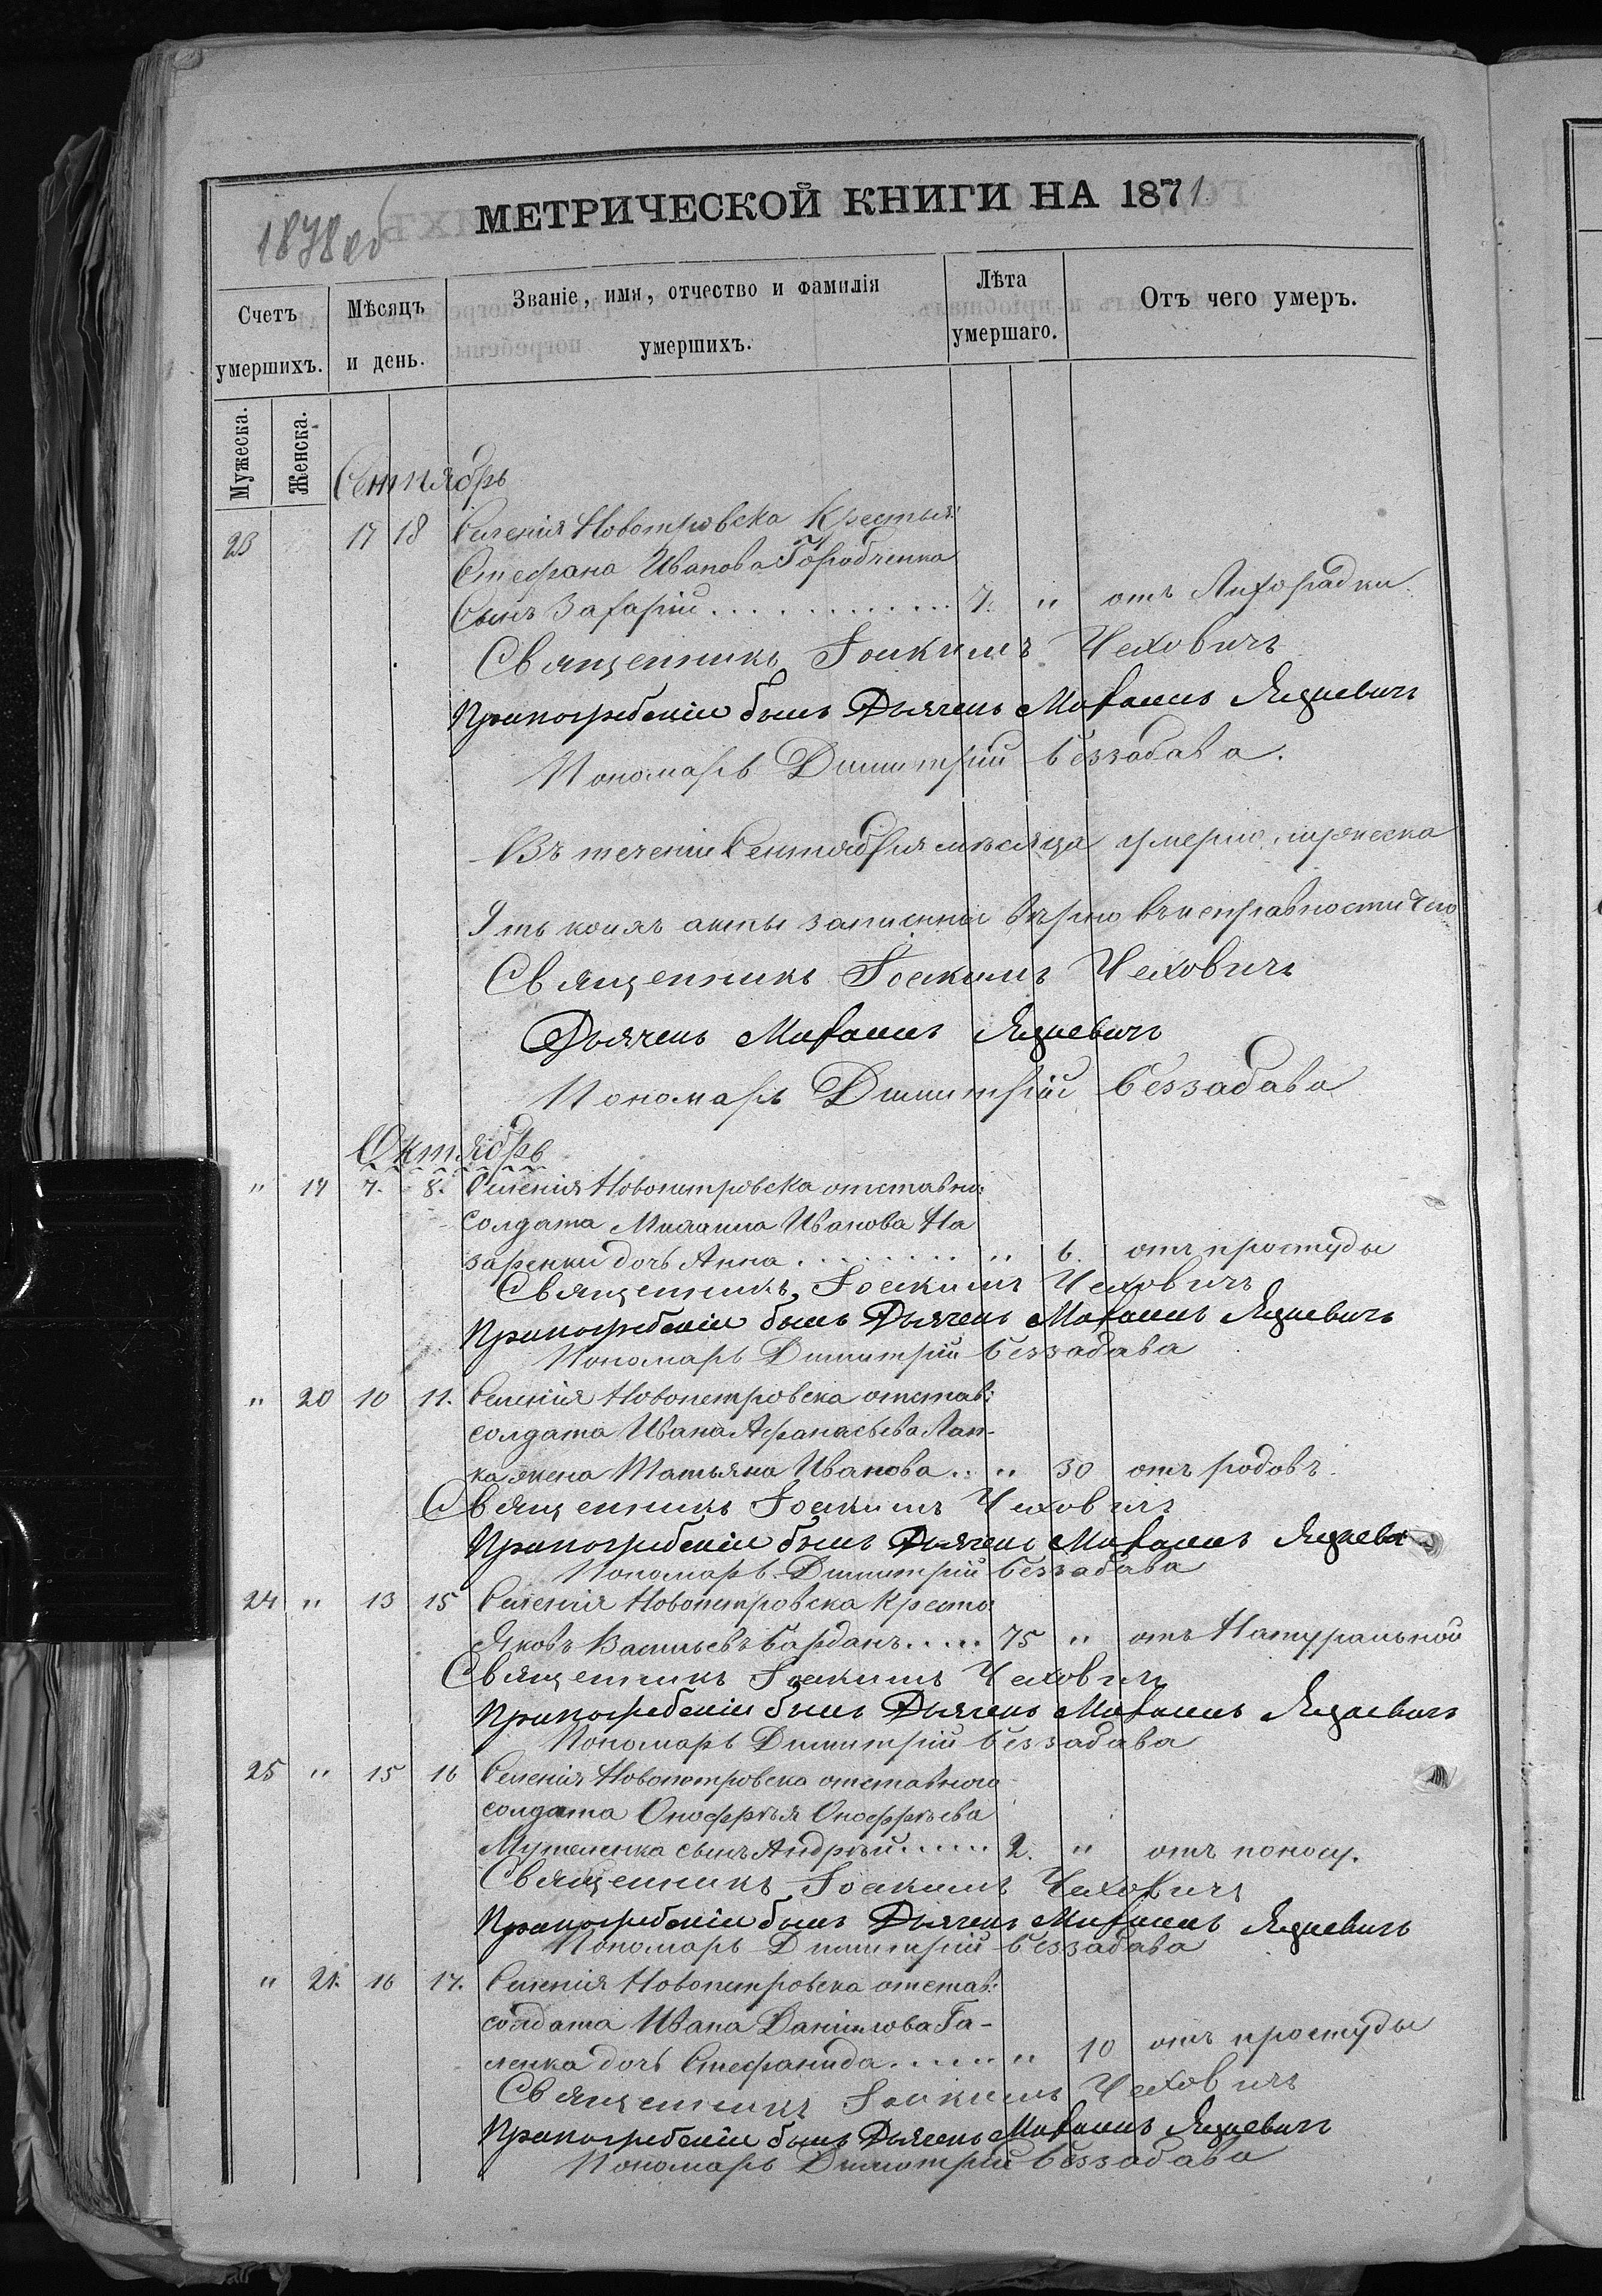 МЕТРИЧЕСКОЙ КНИГИ НА 1871
1878 об
Счетъ умершихъ.
Мѣсяцъ и день.
Званіе, имя, отчество и фамилія умершихъ.
Лѣта умершаго.
Отъ чего умеръ.
Мужеска.
Женска.
Сентябрь
23 17 18 Селенія Новопетровска Крестья:
Стефана Иванова Горобченка
Сынъ Захарій . . . . . . . . . . . 7. " отъ Лихорадки.
Священникъ Іоакимъ Чеховичъ
При погребеніи былъ Дьячекъ Михаилъ Яцкевичъ
Пономарь Димитрій Беззабава.
Въ теченіи Сентября мѣсяца умерло мужеска
5ть коихъ акты записаны вѣрно въ исправности чего
Священникъ Іоакимъ Чеховичъ
Дьячекъ Михаилъ Яцкевичъ
Пономарь Димитрій Беззабава
Октябрь
" 19 7. 8. Селенія Новопетровска отставна:
солдата Михаила Иванова На
заренки дочь Анна . . . . . . . . " 6. отъ простуды
Священникъ Іоакимъ Чеховичъ
При погребеніи былъ Дьячекъ Михаилъ Яцкевичъ
Пономарь Димитрій Беззабава
" 20 10 11. Селенія Новопетровска отстав:
солдата Ивана Афанасьева Лап-
ка жена Татьяна Иванова . . " 30 отъ родовъ.
Священникъ Іоакимъ Чеховичъ
При погребеніи былъ Дьячекъ Михаилъ Яцкеви
Пономарь Димитрій Беззабава
24 " 13 15 Селенія Новопетровска Кресть:
Яковъ Васильевъ Барданъ . . . . . 75 " отъ Натуральной
Священникъ Іоакимъ Чеховичъ
При погребеніи былъ Дьячекъ Михаилъ Яцкевичъ
Пономарь Димитрій Беззабава
25 " 15 16 Селенія Новопетровска отставного
солдата Оноффрѣя Оноффрѣева
сынъ Андрѣй . . . . . . 2. " отъ поносу.
Священникъ Іоакимъ Чеховичъ
При погребеніи былъ Дьячекъ Михаилъ Яцкевичъ
Пономарь Димитрій Беззабава
" 21. 16 17. Селенія Новопетровска отстав:
солдата Ивана Даниилова Га-
ленка дочь Стефанида . . . . . . " 10 отъ простуды
Священникъ Іоакимъ Чеховичъ
При погребеніи былъ Дьячекъ Михаилъ Яцкевичъ
Пономарь Димитрій Беззабава